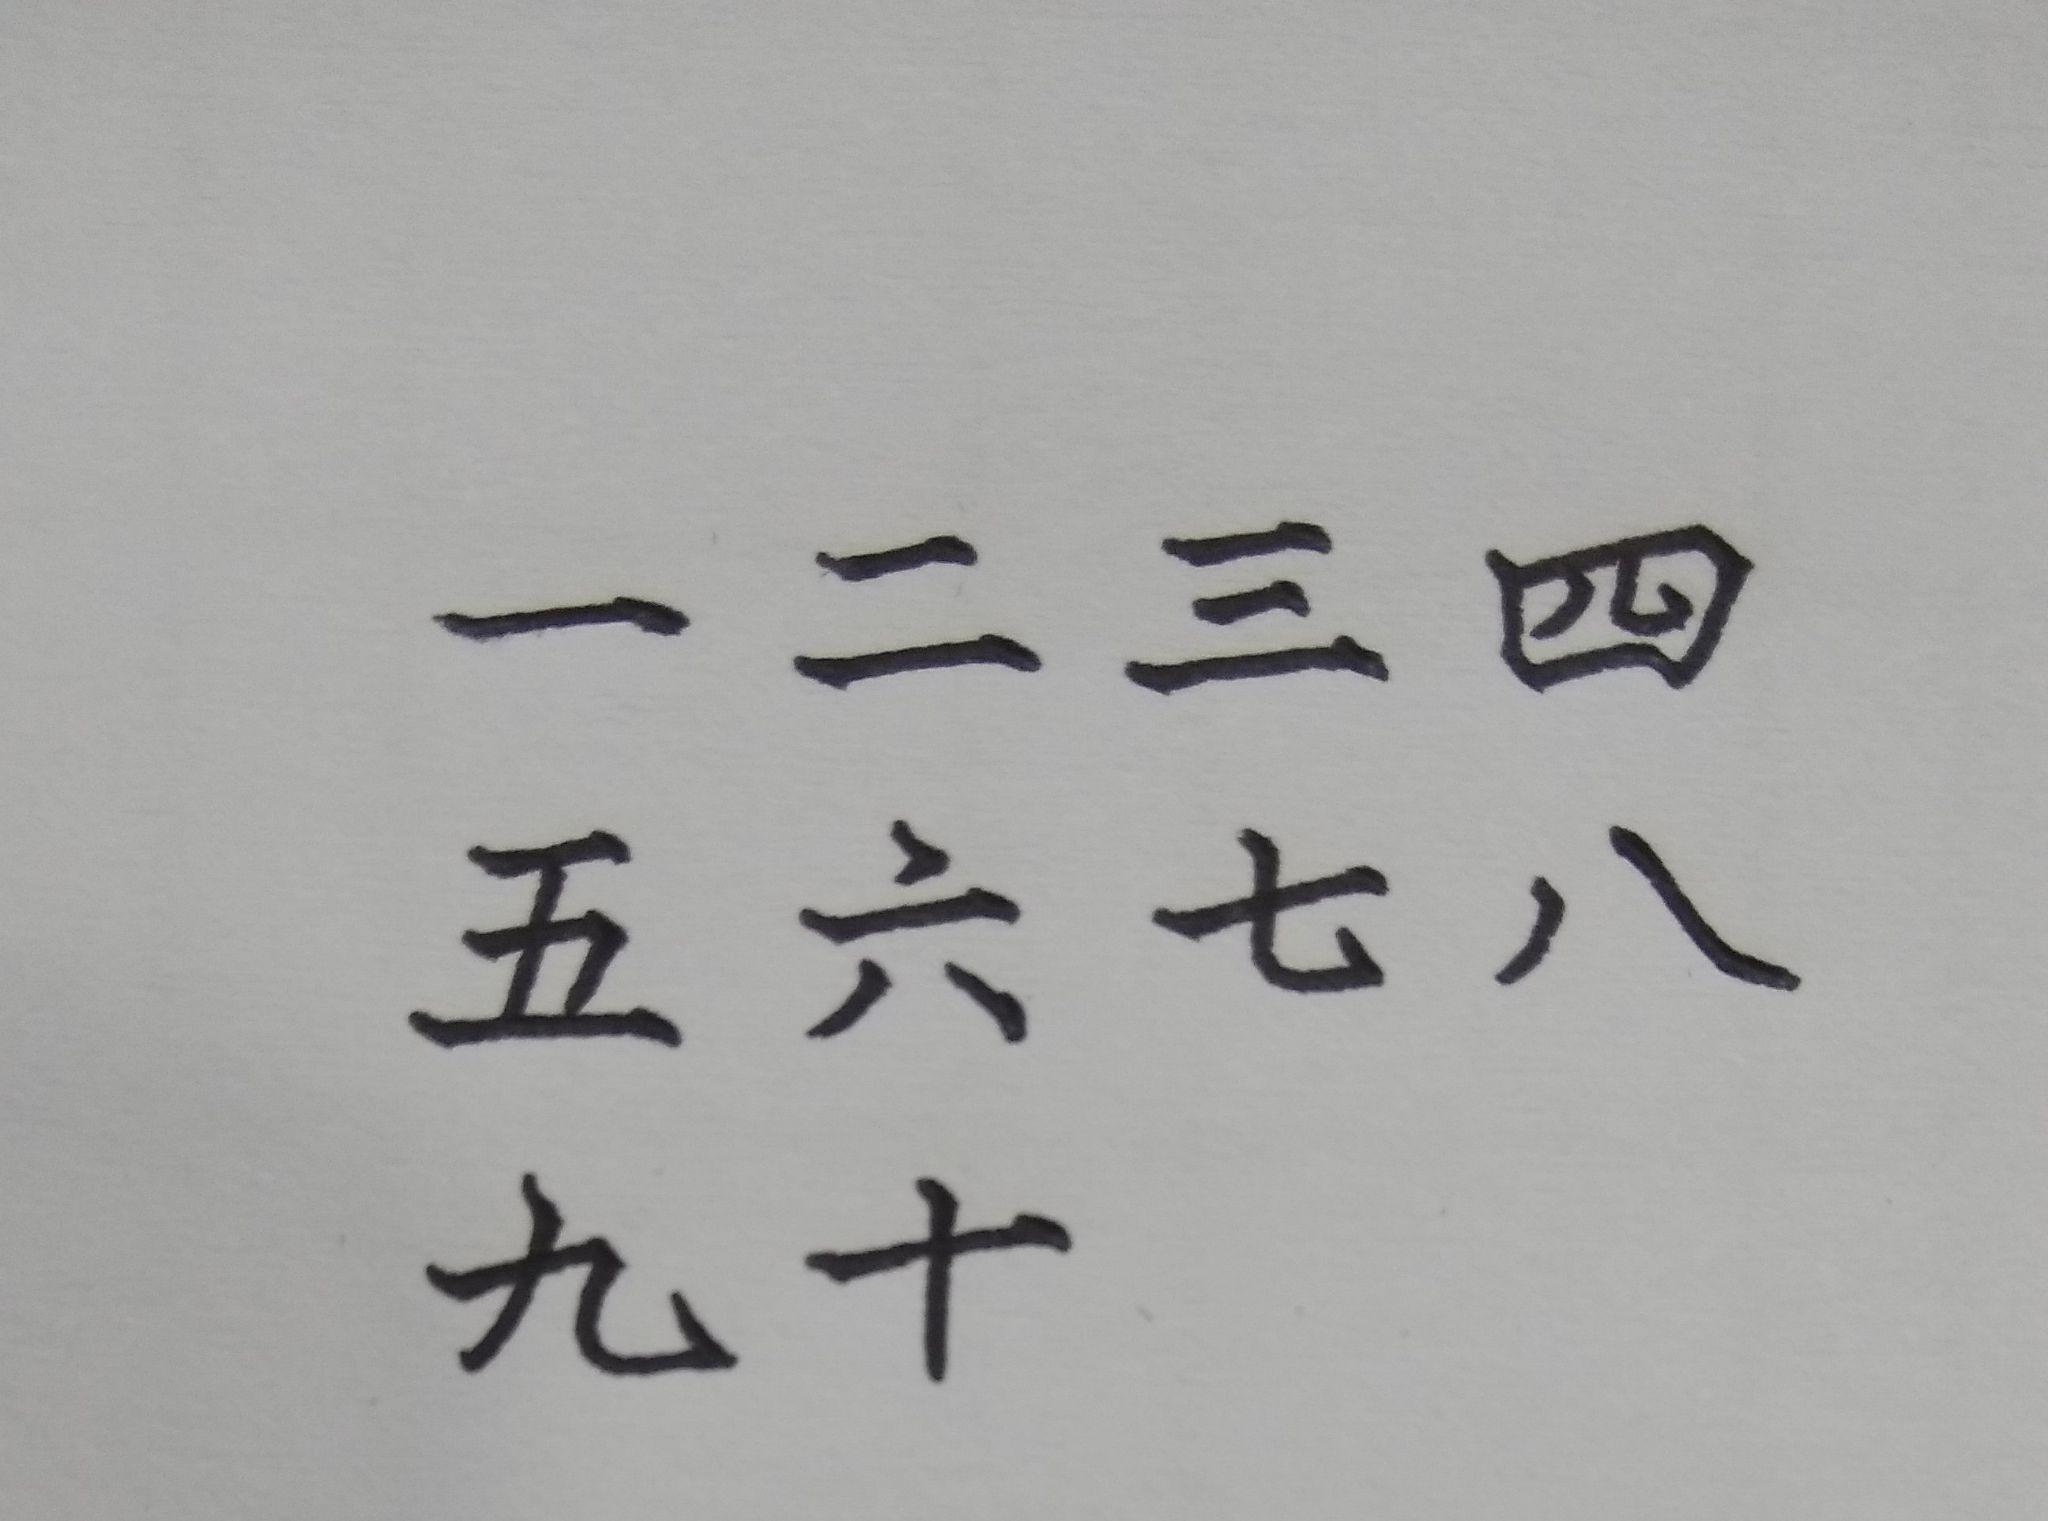 一二三四
五六七八
九十